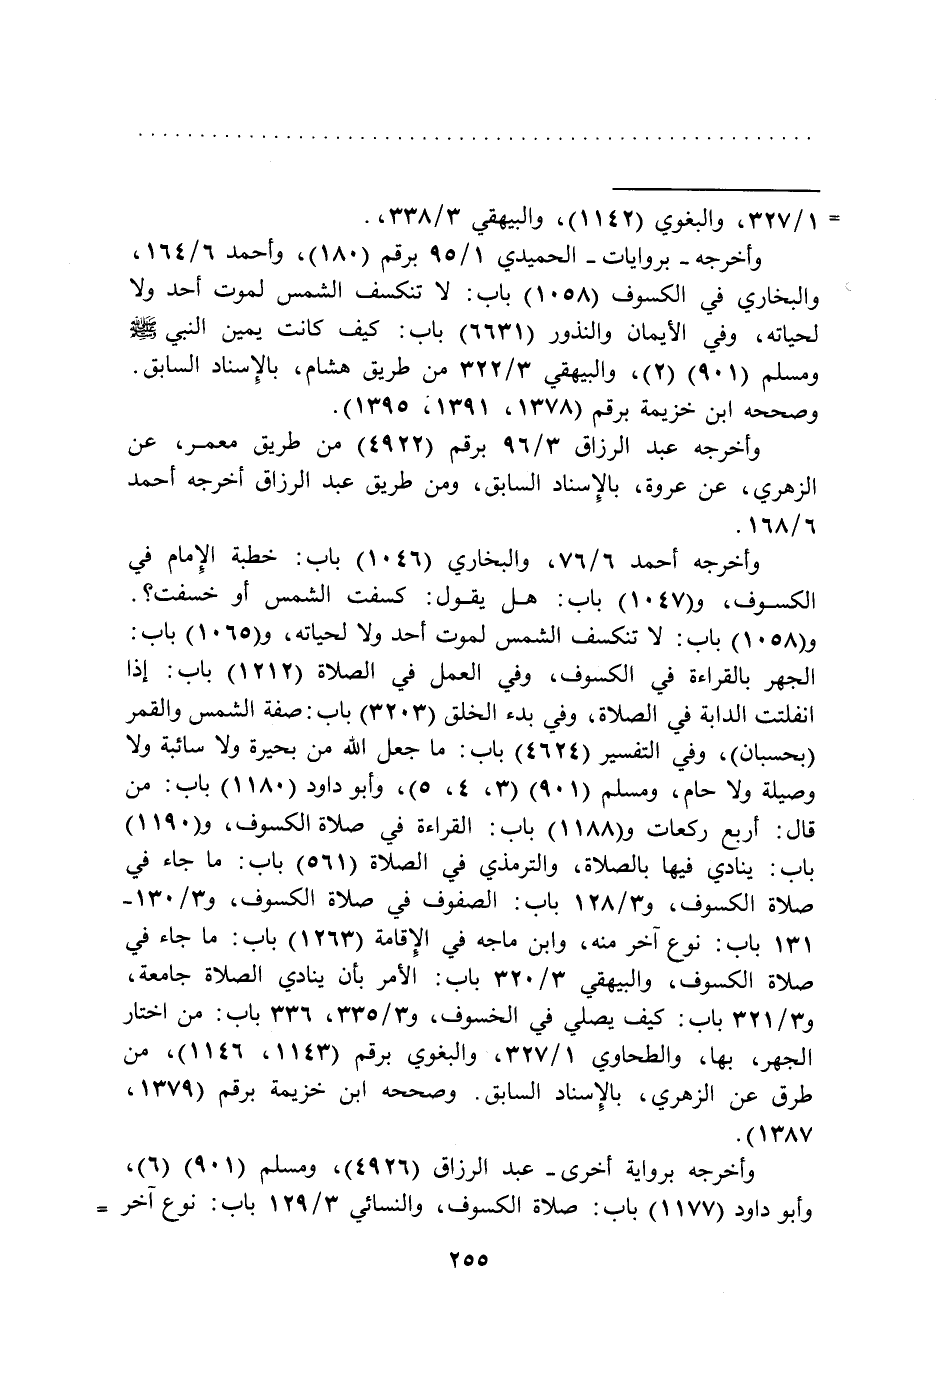 . . . . . . . . . . . . . . . . . . . . . . . . . . . . . . . . . . . . . . . . . . . . . . . . . . . .
= ٣٢٧/١، والبغوي (١١٤٢)، والبيهقي ٣٣٨/٣، .
وأخرجه ـ بروايات ـ الحميدي ٩٥/١ برقم (١٨٠)، وأحمد ١٦٤/٦،
والبخاري في الكسوف (١٠٥٨) باب: لا تنكسف الشمس لموت أحد ولا
لحياته، وفي الأيمان والنذور (٦٦٣١) باب: كيف كانت يمين النبي ﷺ
ومسلم (٩٠١) (٢)، والبيهقي ٣٢٢/٣ من طريق هشام، بالإسناد السابق.
وصححه ابن خزيمة برقم (١٣٧٨، ١٣٩١، ١٣٩٥).
وأخرجه عبد الرزاق ٩٦/٣ برقم (٤٩٢٢) من طريق معمر، عن
الزهري، عن عروة، بالإسناد السابق، ومن طريق عبد الرزاق أخرجه أحمد
١٦٨/٦.
وأخرجه أحمد ٧٦/٦، والبخاري (١٠٤٦) باب: خطبة الإمام في
الكسوف، و(١٠٤٧) باب: هل يقول: كسفت الشمس أو خسفت؟.
و(١٠٥٨) باب: لا تنكسف الشمس لموت أحد ولا لحياته، و(١٠٦٥) باب:
الجهر بالقراءة في الكسوف، وفي العمل في الصلاة (١٢١٢) باب: إذا
انفلتت الدابة في الصلاة، وفي بدء الخلق (٣٢٠٣) باب: صفة الشمس والقمر
(بحسبان)، وفي التفسير (٤٦٢٤) باب: ما جعل الله من بحيرة ولا سائبة ولا
وصيلة ولا حام، ومسلم (٩٠١) (٣، ٤، ٥)، وأبو داود (١١٨٠) باب: من
قال: أربع ركعات و(١١٨٨) باب: القراءة في صلاة الكسوف، و(١١٩٠)
باب: ينادي فيها بالصلاة، والترمذي في الصلاة (٥٦١) باب: ما جاء في
صلاة الكسوف، و١٢٨/٣ باب: الصفوف في صلاة الكسوف، و١٣٠/٣ـ
١٣١ باب: نوع آخر منه، وابن ماجه في الإقامة (١٢٦٣) باب: ما جاء في
صلاة الكسوف، والبيهقي ٣٢٠/٣ باب: الأمر بأن ينادي الصلاة جامعة،
و٣٢١/٣ باب: كيف يصلي في الخسوف، و٣٣٥/٣، ٣٣٦ باب: من اختار
الجهر، بها، والطحاوي ٣٢٧/١، والبغوي برقم (١١٤٣، ١١٤٦)، من
طرق عن الزهري، بالإسناد السابق. وصححه ابن خزيمة برقم (١٣٧٩،
١٣٨٧).
وأخرجه برواية أخرى ـ عبد الرزاق (٤٩٢٦)، ومسلم (٩٠١) (٦)،
وأبو داود (١١٧٧) باب: صلاة الكسوف، والنسائي ١٢٩/٣ باب: نوع آخر =
٢٥٥